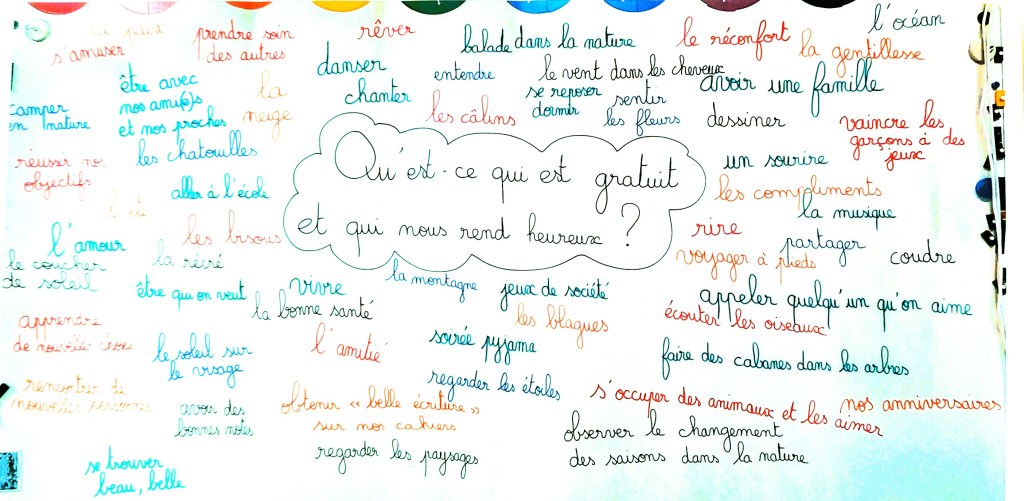 s'amuser
prendre soin
des autres
rêver
balade dans la nature
le réconfort
l'océan
la gentillesse
camper
en nature
être avec
nos ami(e)s
et nos proches
la
neige
danser
chanter
entendre
le vent dans les cheveux
les câlins
se reposer
dormir
sentir
les fleurs
avoir une famille
dessiner
vaincre les
garçons à des
jeux
réussir nos
objectifs
les chatouilles
aller à l'école
l'été
Qu'est-ce qui est gratuit
et qui nous rend heureux ?
un sourire
les compliments
la musique
l'amour
les bisous
rire
partager
coudre
le coucher
de soleil
la récré
voyager à pieds
être qu'on veut
vivre
la montagne
jeux de société
appeler quelqu'un qu'on aime
la bonne santé
les blagues
écouter les oiseaux
apprendre
de nouvelles choses
le soleil sur
le visage
l'amitié
soirée pyjama
faire des cabanes dans les arbres
rencontrer de
nouvelles personnes
avoir des
bonnes notes
obtenir « belle écriture »
sur nos cahiers
regarder les étoiles
s'occuper des animaux et les aimer
nos anniversaires
regarder les paysages
observer le changement
des saisons dans la nature
se trouver
beau, belle